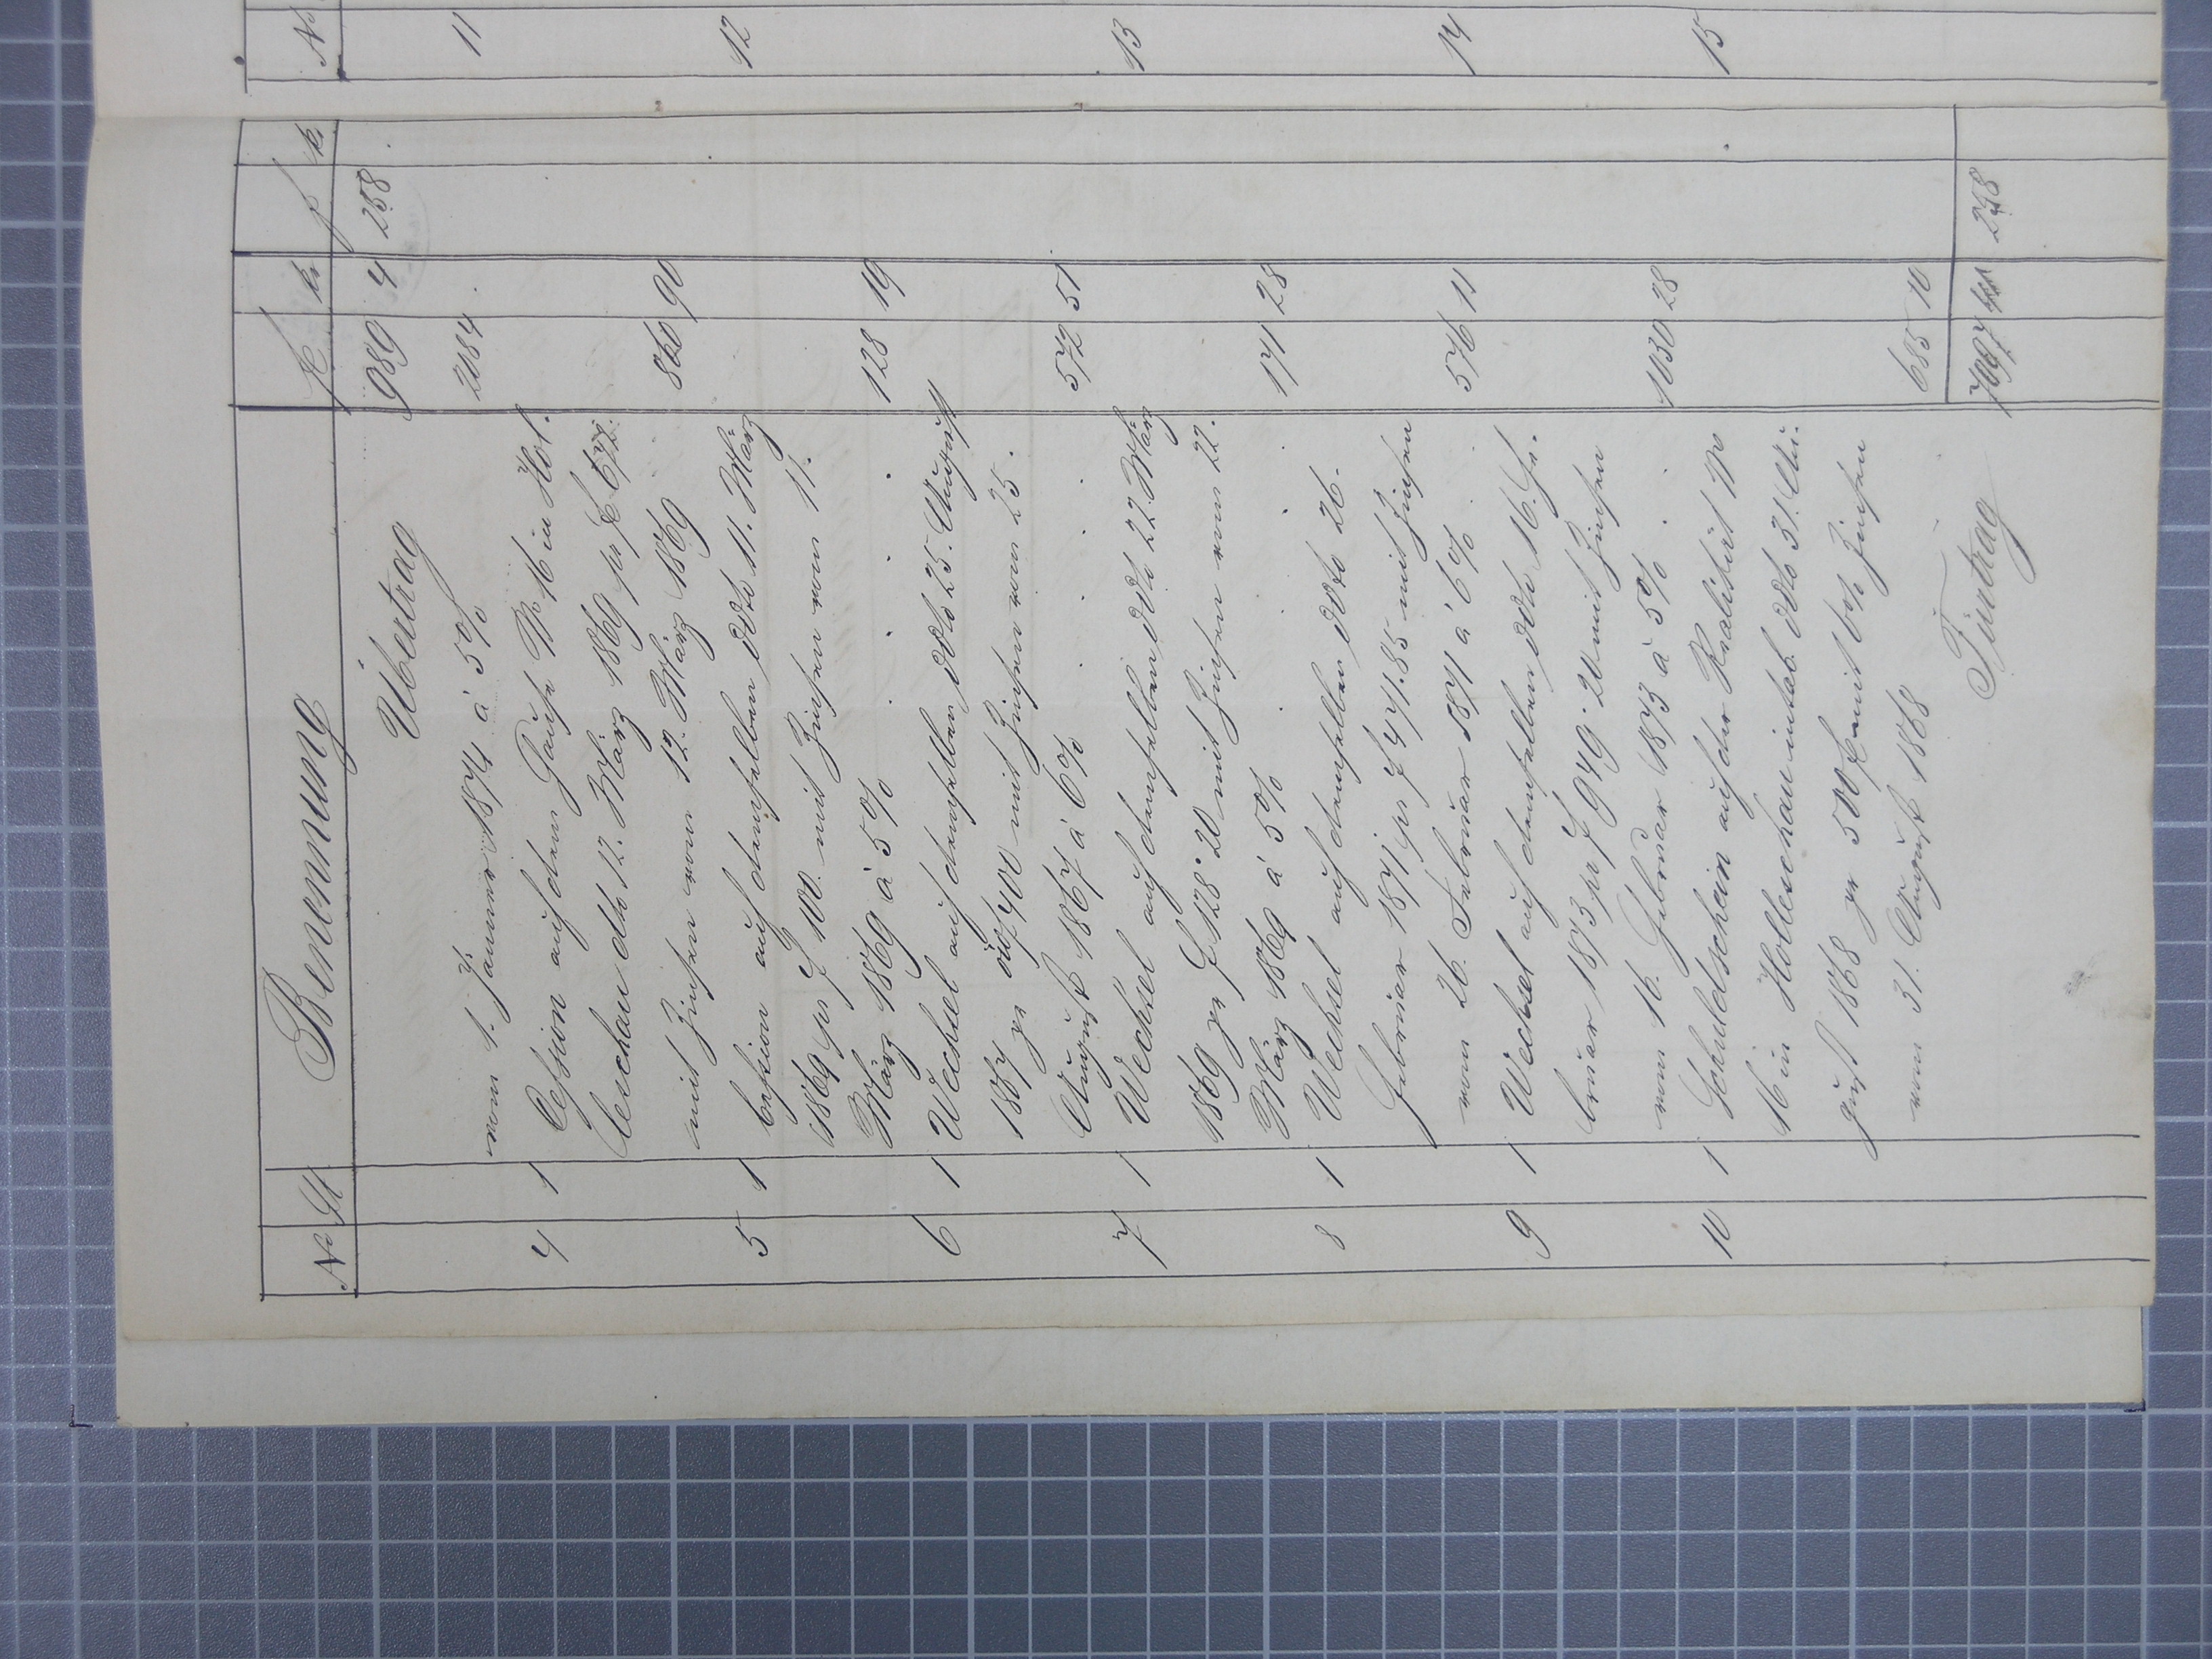 No St Benennung fl kr f kr
Übertrag 989 4 258
vom 1. Jänner 1874 à 5% 2084
4 1 Cession auf dem Hause No 16 in Hol-
leschau ddto 12. März 1869 pr fl 672.
mit Zinsen vom 12. März 1869 860 90
5 1 Cession auf denselben ddto 11. März
1869 pr f 100 mit Zinsen vom 11.
März 1869 à 5% 128 19
6 1 Wechsel auf denselben ddto 25. August
1867 pr öW f 400 mit Zinsen vom 25.
August 1867 à 6% 572 51
7 1 Wechsel auf denselben ddto 22. März
1869 pr f 128·20 mit Zinsen vom 22.
März 1869 à 5% 171 28
8 1 Wechsel auf denselben ddto 26.
Februar 1871 pr f 471.85 mit Zinsen
vom 26. Februar 1871 à 6% 576 11
9 1 Wechsel auf denselben ddto 16. Fe-
bruar 1873 pr f 949·20 mit Zinsen
vom 16. Februar 1873 à 5% 1030 28
10 1 Schuldschein auf der Realität No
16 in Holleschau intab. ddto 31. Au-
gust 1868 pr 500 fl mit 6% Zinsen
vom 31. August 1868 685 10
Fürtrag 7097 41 258
No
11
12
13
14
15